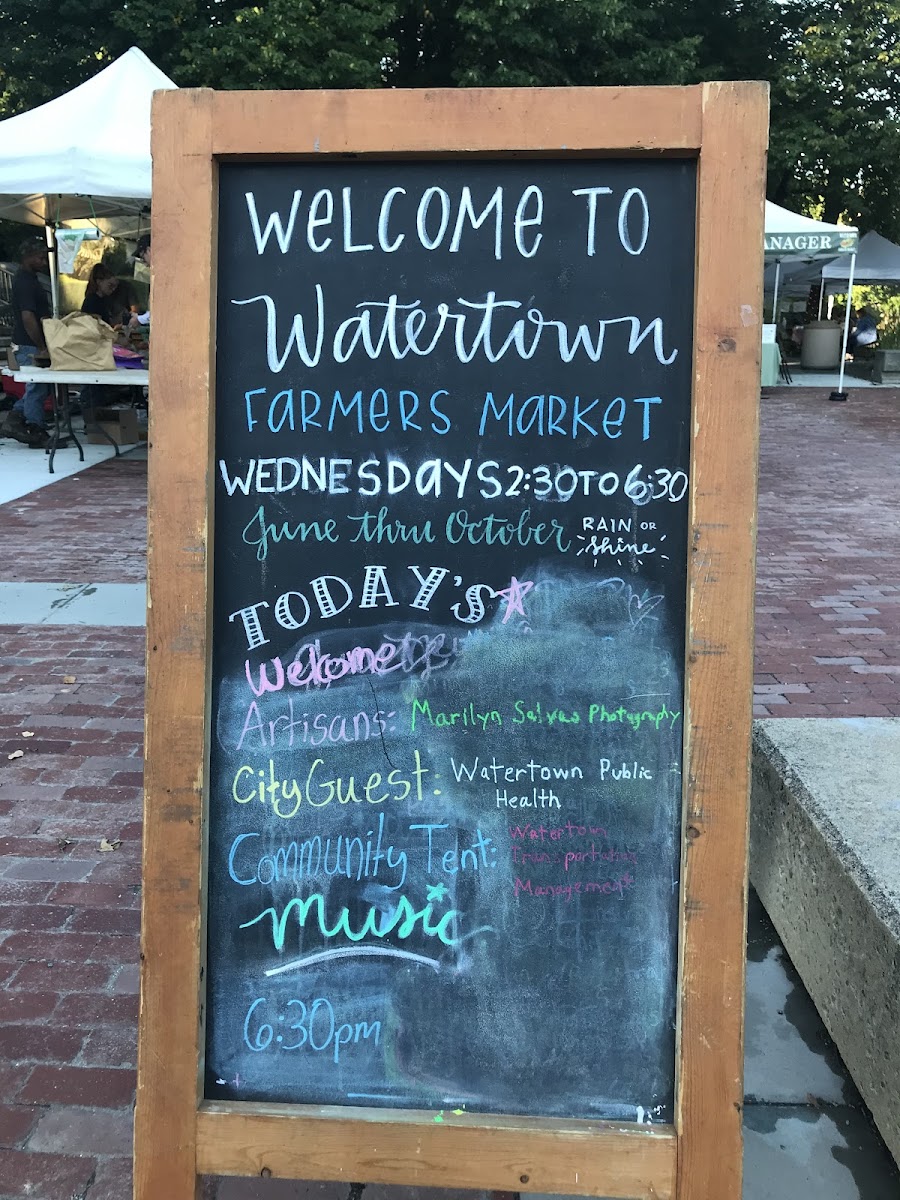 WELCOME TO
Watertown
FARMERS MARKET
WEDNESDAYS 2:30 TO 6:30
June thru October RAIN OR
Shine
TODAY'S
Welcome
Artisans: Marilyn Salvas Photography
City Guest: Watertown Public
Health
Community Tent: Watertown
Transportation
Management
music
6:30pm
ANAGER